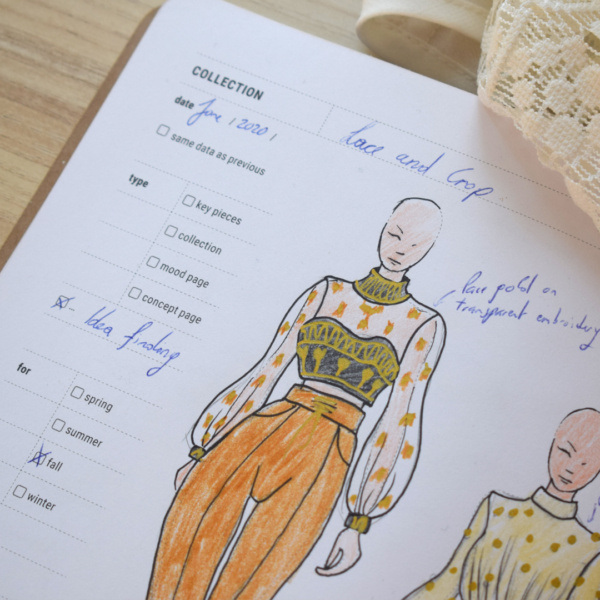 COLLECTION
date June / 2020 /
Lace and Crop
same data as previous
type
key pieces
collection
mood page
concept page
Idea finding
on
transparent embroidery
for
spring
summer
fall
winter